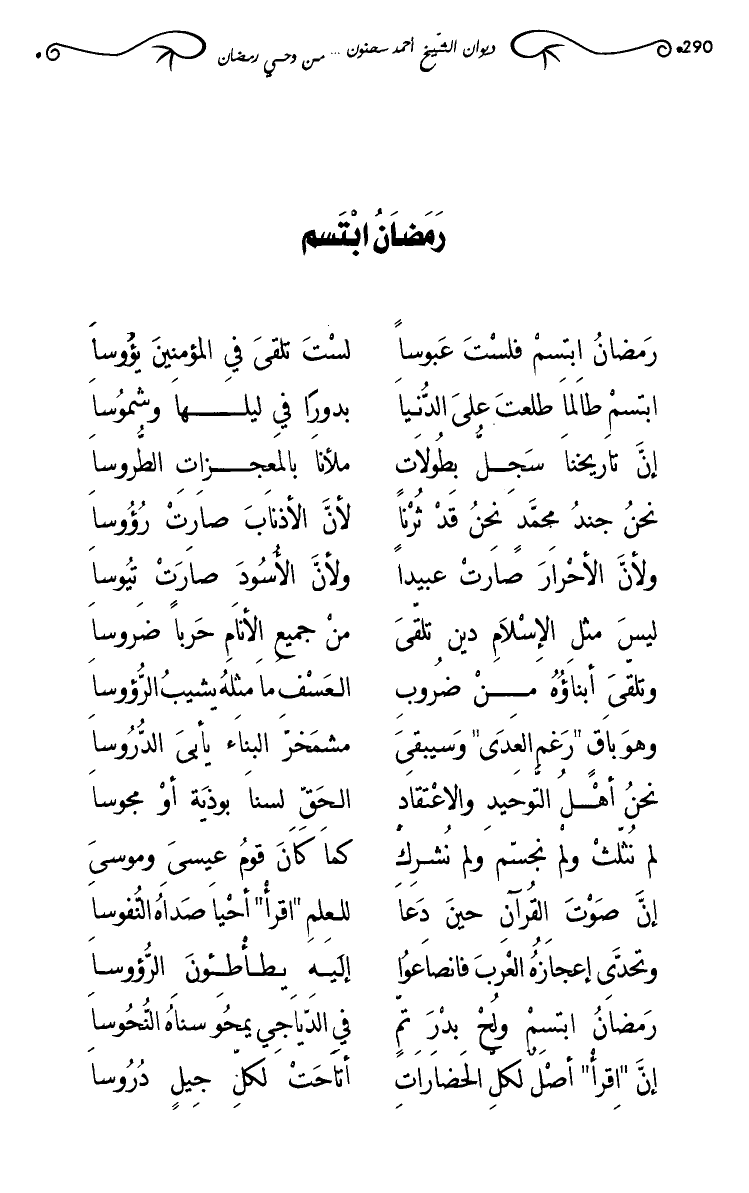 290 ديوان الشّيخ أحمد سحنون ... من وحي رمضان
رَمَضَانُ ابْتَسم
رَمضانُ ابتسمْ فلسْتَ عَبوساً لسْتَ تلقىَ في المؤمنينَ يؤُوساَ
ابتسمْ طالماَ طلعتَ علىَ الدُّنياَ بدورًا في ليلها وشموُساَ
إنَّ تاريخناَ سَجلُّ بطولاَت ملأناَ بالمعجزات الطُّروساَ
نحنُ جندُ محمَّد نحنُ قدْ ثُرْناً لأنَّ الأذنابَ صارتْ رُؤُوساَ
ولأنَّ الأحْرارَ صارتْ عبيداً ولأنَّ الأُسُودَ صارَتْ تيُوساَ
ليسَ مثل الإسْلاَمِ دين تلقَّىَ منْ جميعِ الأنَامِ حَرباً ضروساَ
وتلقىَ أبناؤُهُ منْ ضُروبِ العَسْفِ ماَ مثلهُ يشيبُ الرُّؤوساَ
وهوَ باقٍ "رَغم العِدَى" وَسيبقىَ مشمَخرّ البناء يأبىَ الدُّرُوساَ
نحنُ أهْلُ التَّوحيدِ والاعْتقاَدِ الحَقِّ لسناَ بوذيَة أوْ مجوساَ
لم نُثلّثْ ولمْ نجسّم ولم نُشركْ كماَ كاَنَ قومُ عيسىَ وموسىَ
إنَّ صَوْتَ القُرآنِ حينَ دَعاَ للعلمِ "اقرأْ" أحْياَ صَداهُ النُّفوساَ
وتحدَّى إعجازهُ العُربَ فانصاعُوا إليَه يطأْطئونَ الرُّؤوساَ
رَمضانُ ابتسمْ ولُحْ بدْرَ تمٍّ في الدّياَجي يمحُو سناهُ النُّحُوساَ
إنَّ "اِقرأْ" أصْلٌ لكلِّ الحَضارَاتِ أتاَحَتْ لكلّ جِيلٍ دُرُوساَ